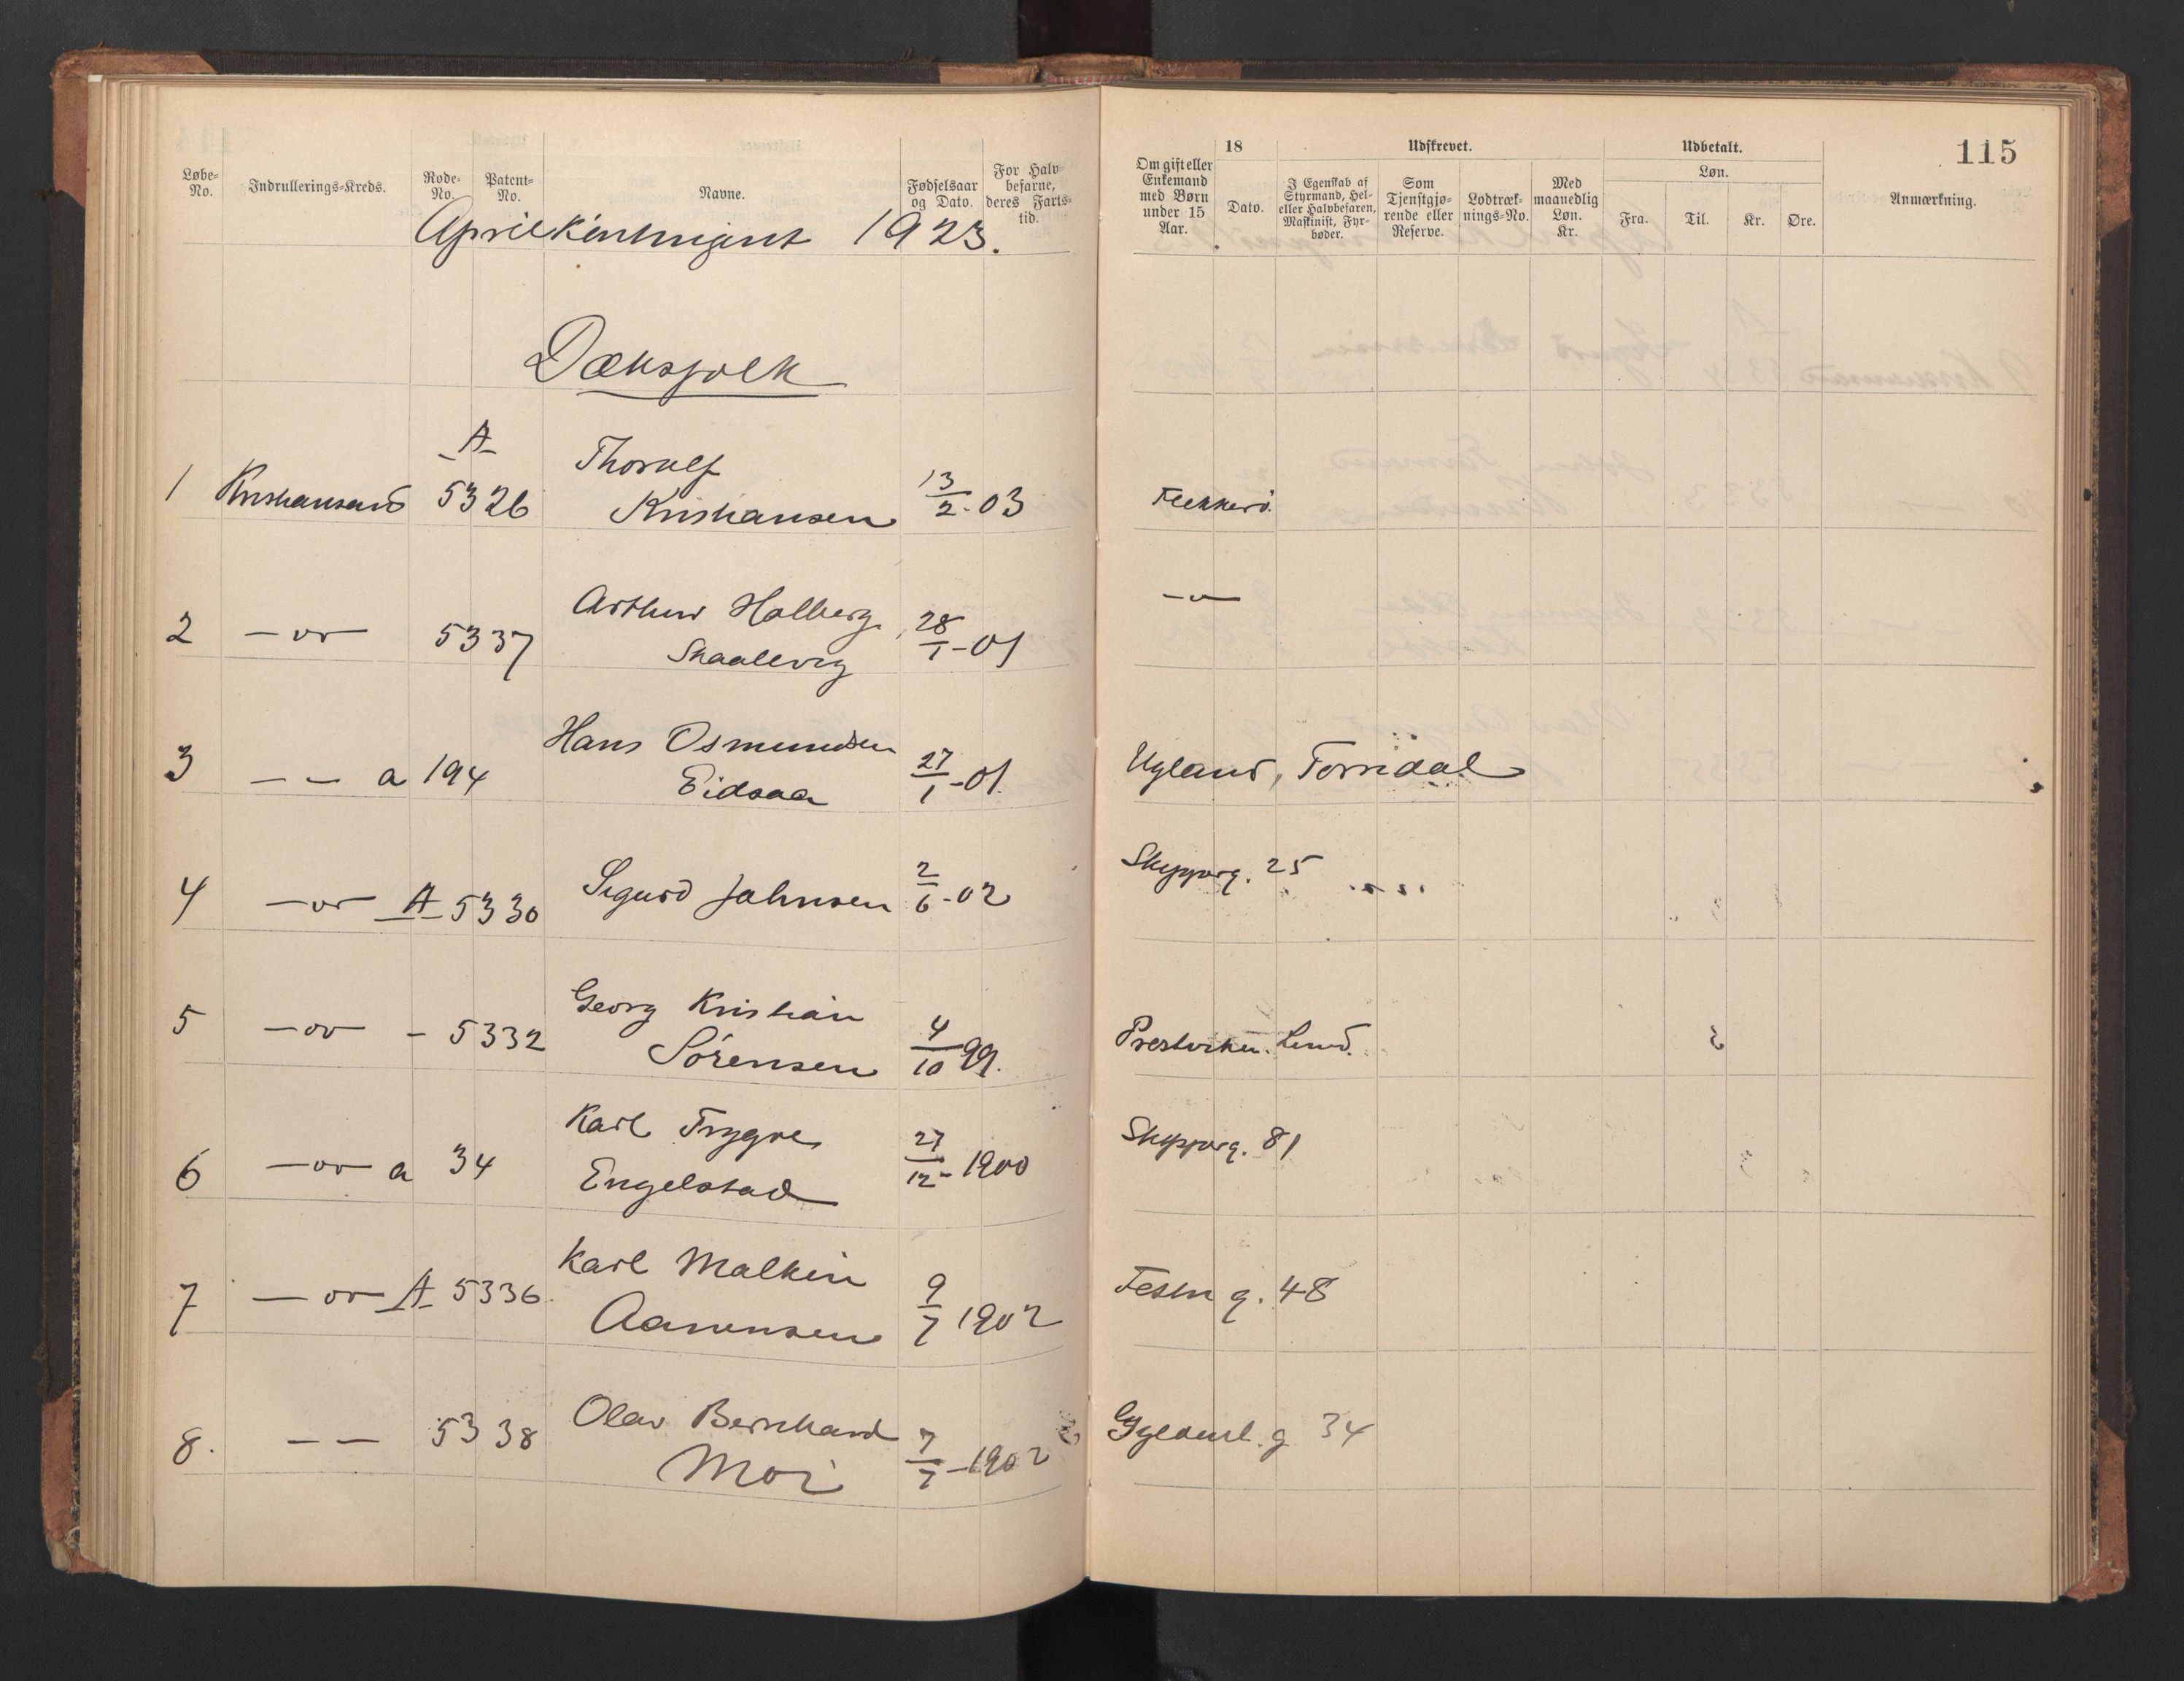 115
Løbe-No.
Indrullerings-Kreds.
Rode-No.
Patent-No.
Navne.
Fødselsaar og Dato.
For Halv-befarne, deres Farts-tid.
Om gift eller Enkemand med Børn under 15 Aar.
18
Dato.
Udskrevet.
I Egenskab af Styrmand, Hel- eller Halvbefaren, Maskinist, Fyr-bøder.
Som Tjenstgjø-rende eller Reserve.
Lodtræk-nings-No.
Med maanedlig Løn. Kr.
Udbetalt.
Løn.
Fra. Til. Kr. Øre.
Anmærkning.
Aprilkontingent 1923.
Dæksfolk
1 Kristiansand A 5326 Thorulf Kristiansen 13/2-03 Flekkerö
2 —"— 5337 Arthur Holberg Skaalevig 28/1-01 —"—
3 — — a 194 Hans Osmundsen Eidsaa 27/1-01. Ugland, Torridal
4 —"— A 5330 Sigurd Johnsen 2/6-02 Skipperg. 25
5 —"— - 5332 Georg Kristian Sörensen 4/10 99. Prestviken. Lund.
6 —"— a 34 Karl Trygve Engelstad 27/12-1900 Skipperg. 81
7 —"— A 5336 Karl Malkin Aanensen 9/7 1902 Festn g. 48
8. — — 5338 Olav Bernhard Moi 7/7-1902 Gyldenl. g 34